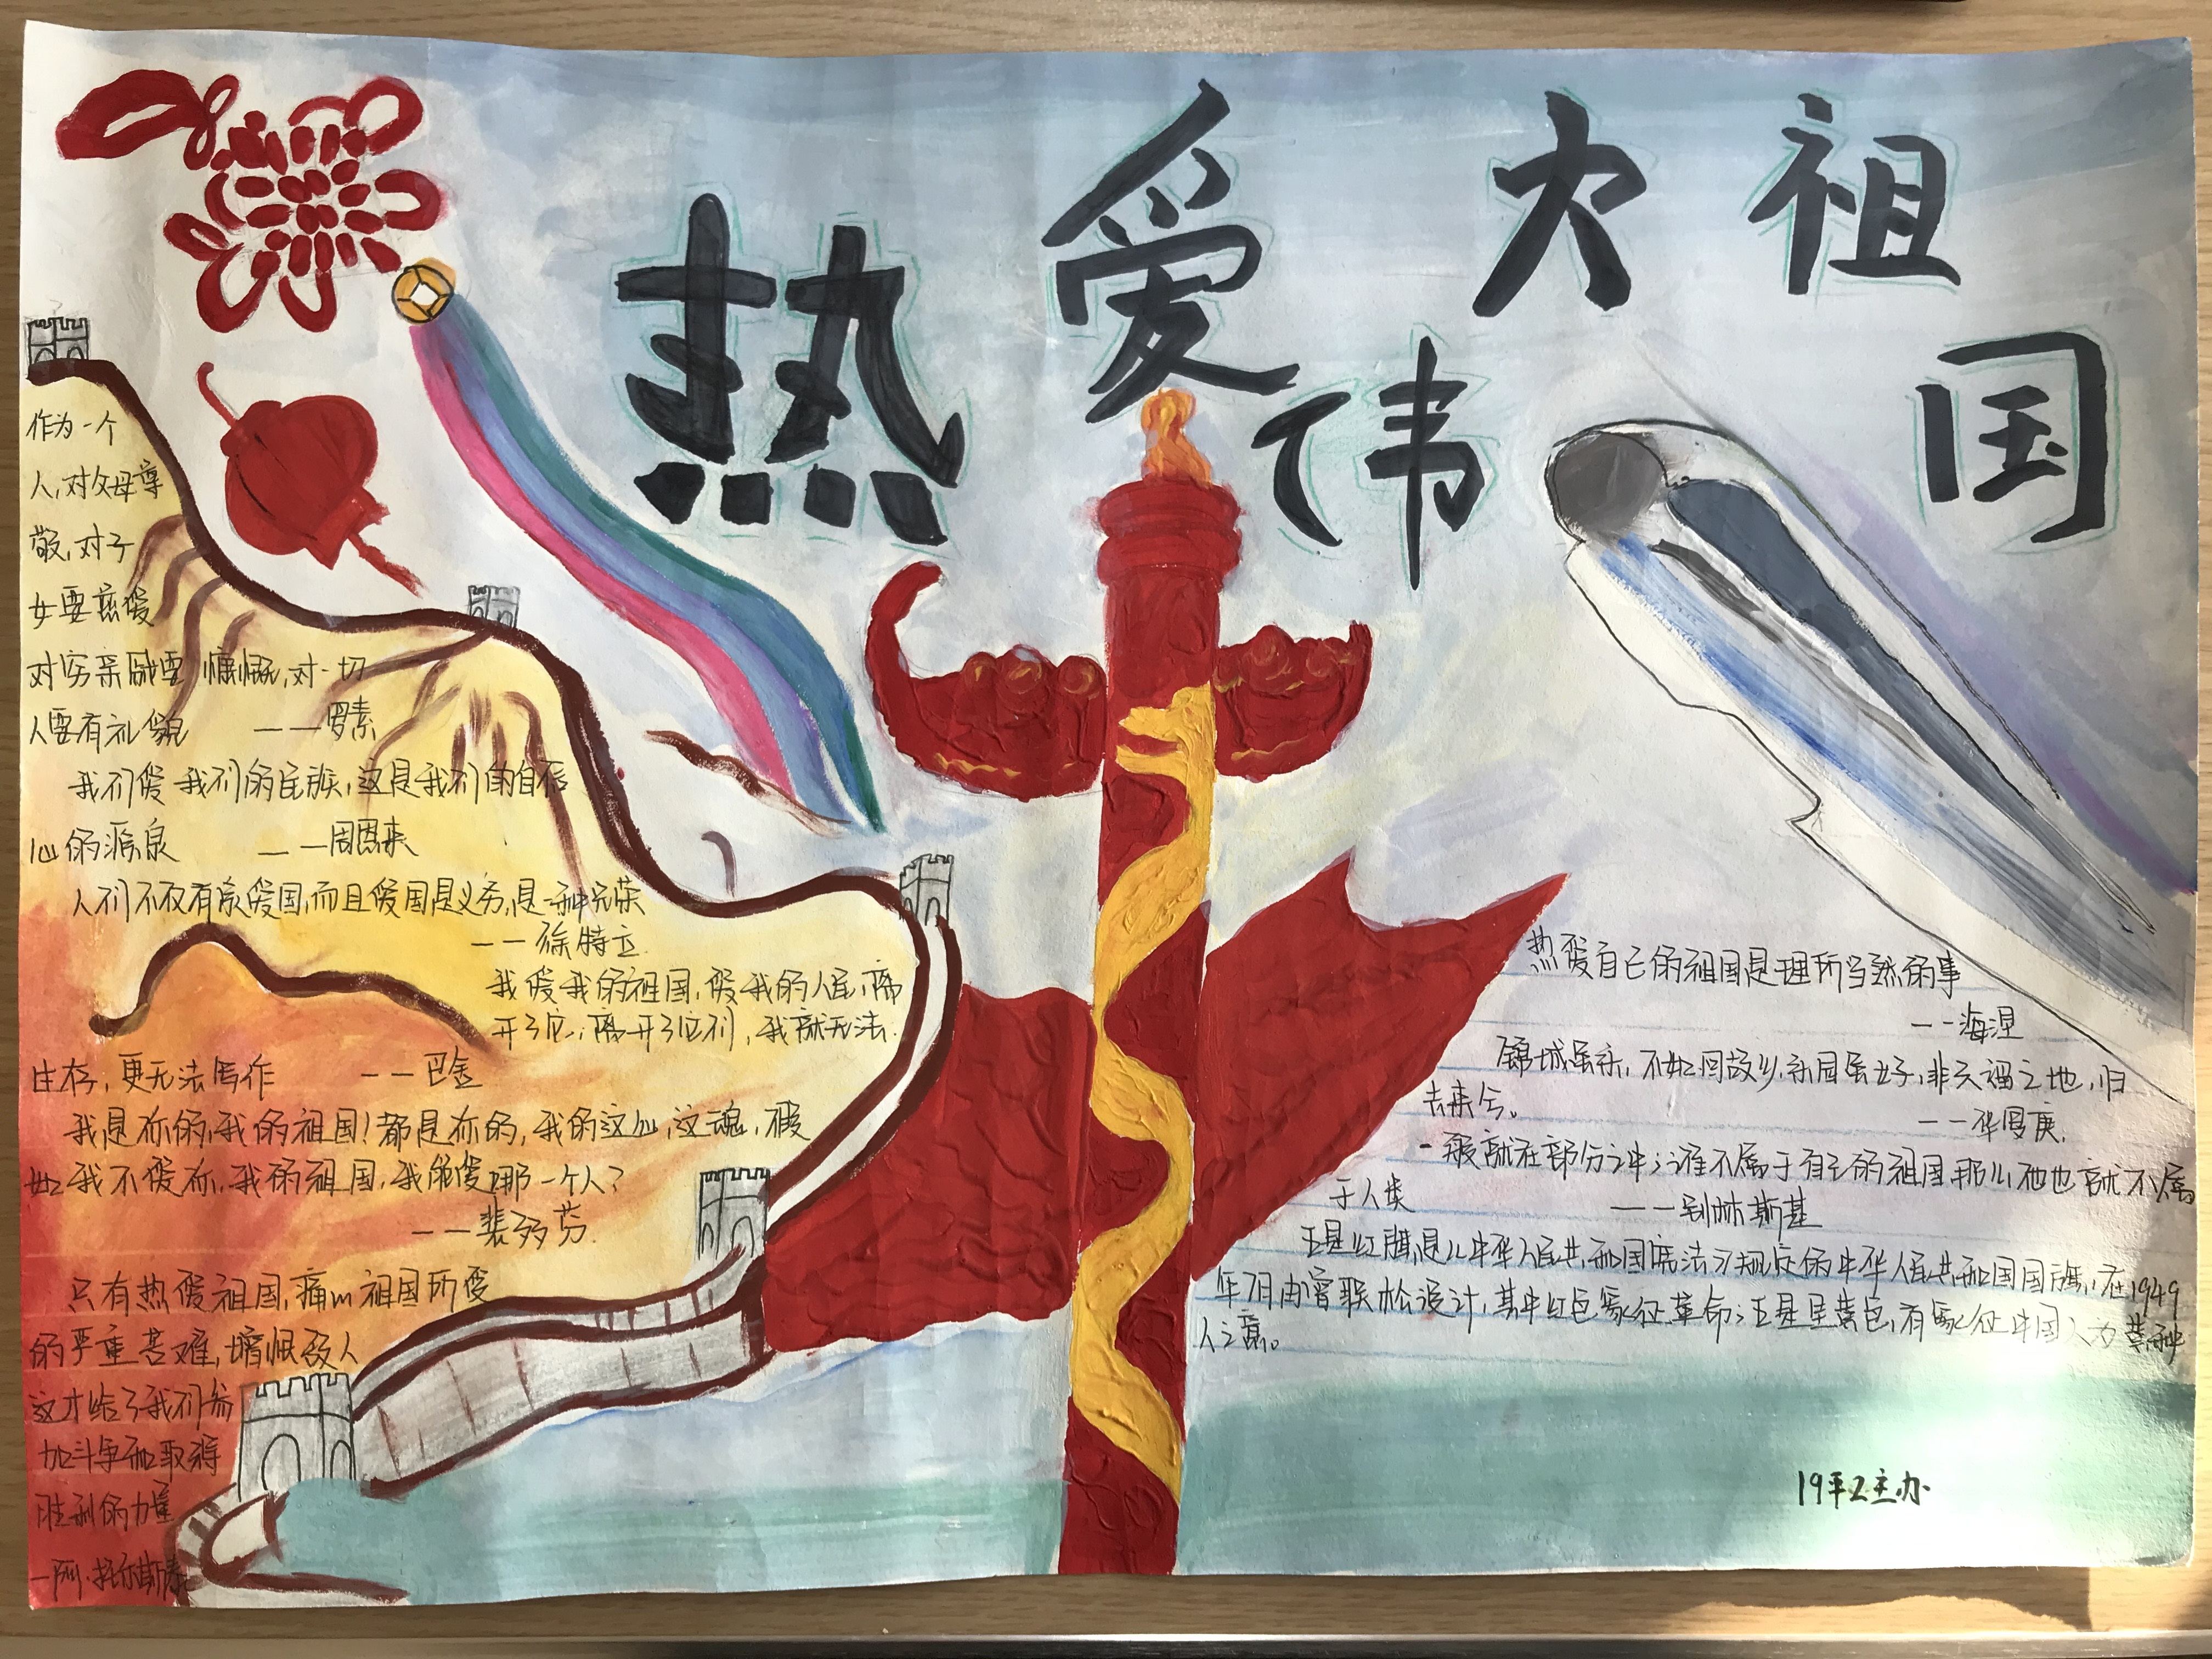 热爱伟大祖国
作为一个
人,对父母尊
敬,对子
女要慈爱
对穷亲戚要慷慨,对一切
人要有礼貌 ——罗素
我们爱我们的民族,这是我们的自信
心的源泉 ——周恩来
人们不仅有家爱国,而且爱国是义务,是一种光荣
——徐特立
我爱我的祖国,爱我的人民,离
开了它,离开了它们,我就无法
生存,更无法写作 ——巴金
我是你的,我的祖国!都是你的,我的这心,这魂,假
如我不爱你,我的祖国,我能爱哪一个人?
——裴多芬
只有热爱祖国,痛心祖国所受
的严重苦难,憎恨敌人
这才给了我们参
加斗争和取得
胜利的力量
—阿·托尔斯泰
热爱自己的祖国是理所当然的事
——海涅
锦城虽乐,不如回故乡,乐园虽好,非久留之地,归
去来兮。
——华罗庚
一般就在部分之中;谁不属于自己的祖国,那么他也就不属
于人类 ——别林斯基
五星红旗是《中华人民共和国宪法》规定的中华人民共和国国旗,在1949
年7月由曾联松设计,其中红色象征革命;五星呈黄色,有象征中国人为黄种
人之意。
主办